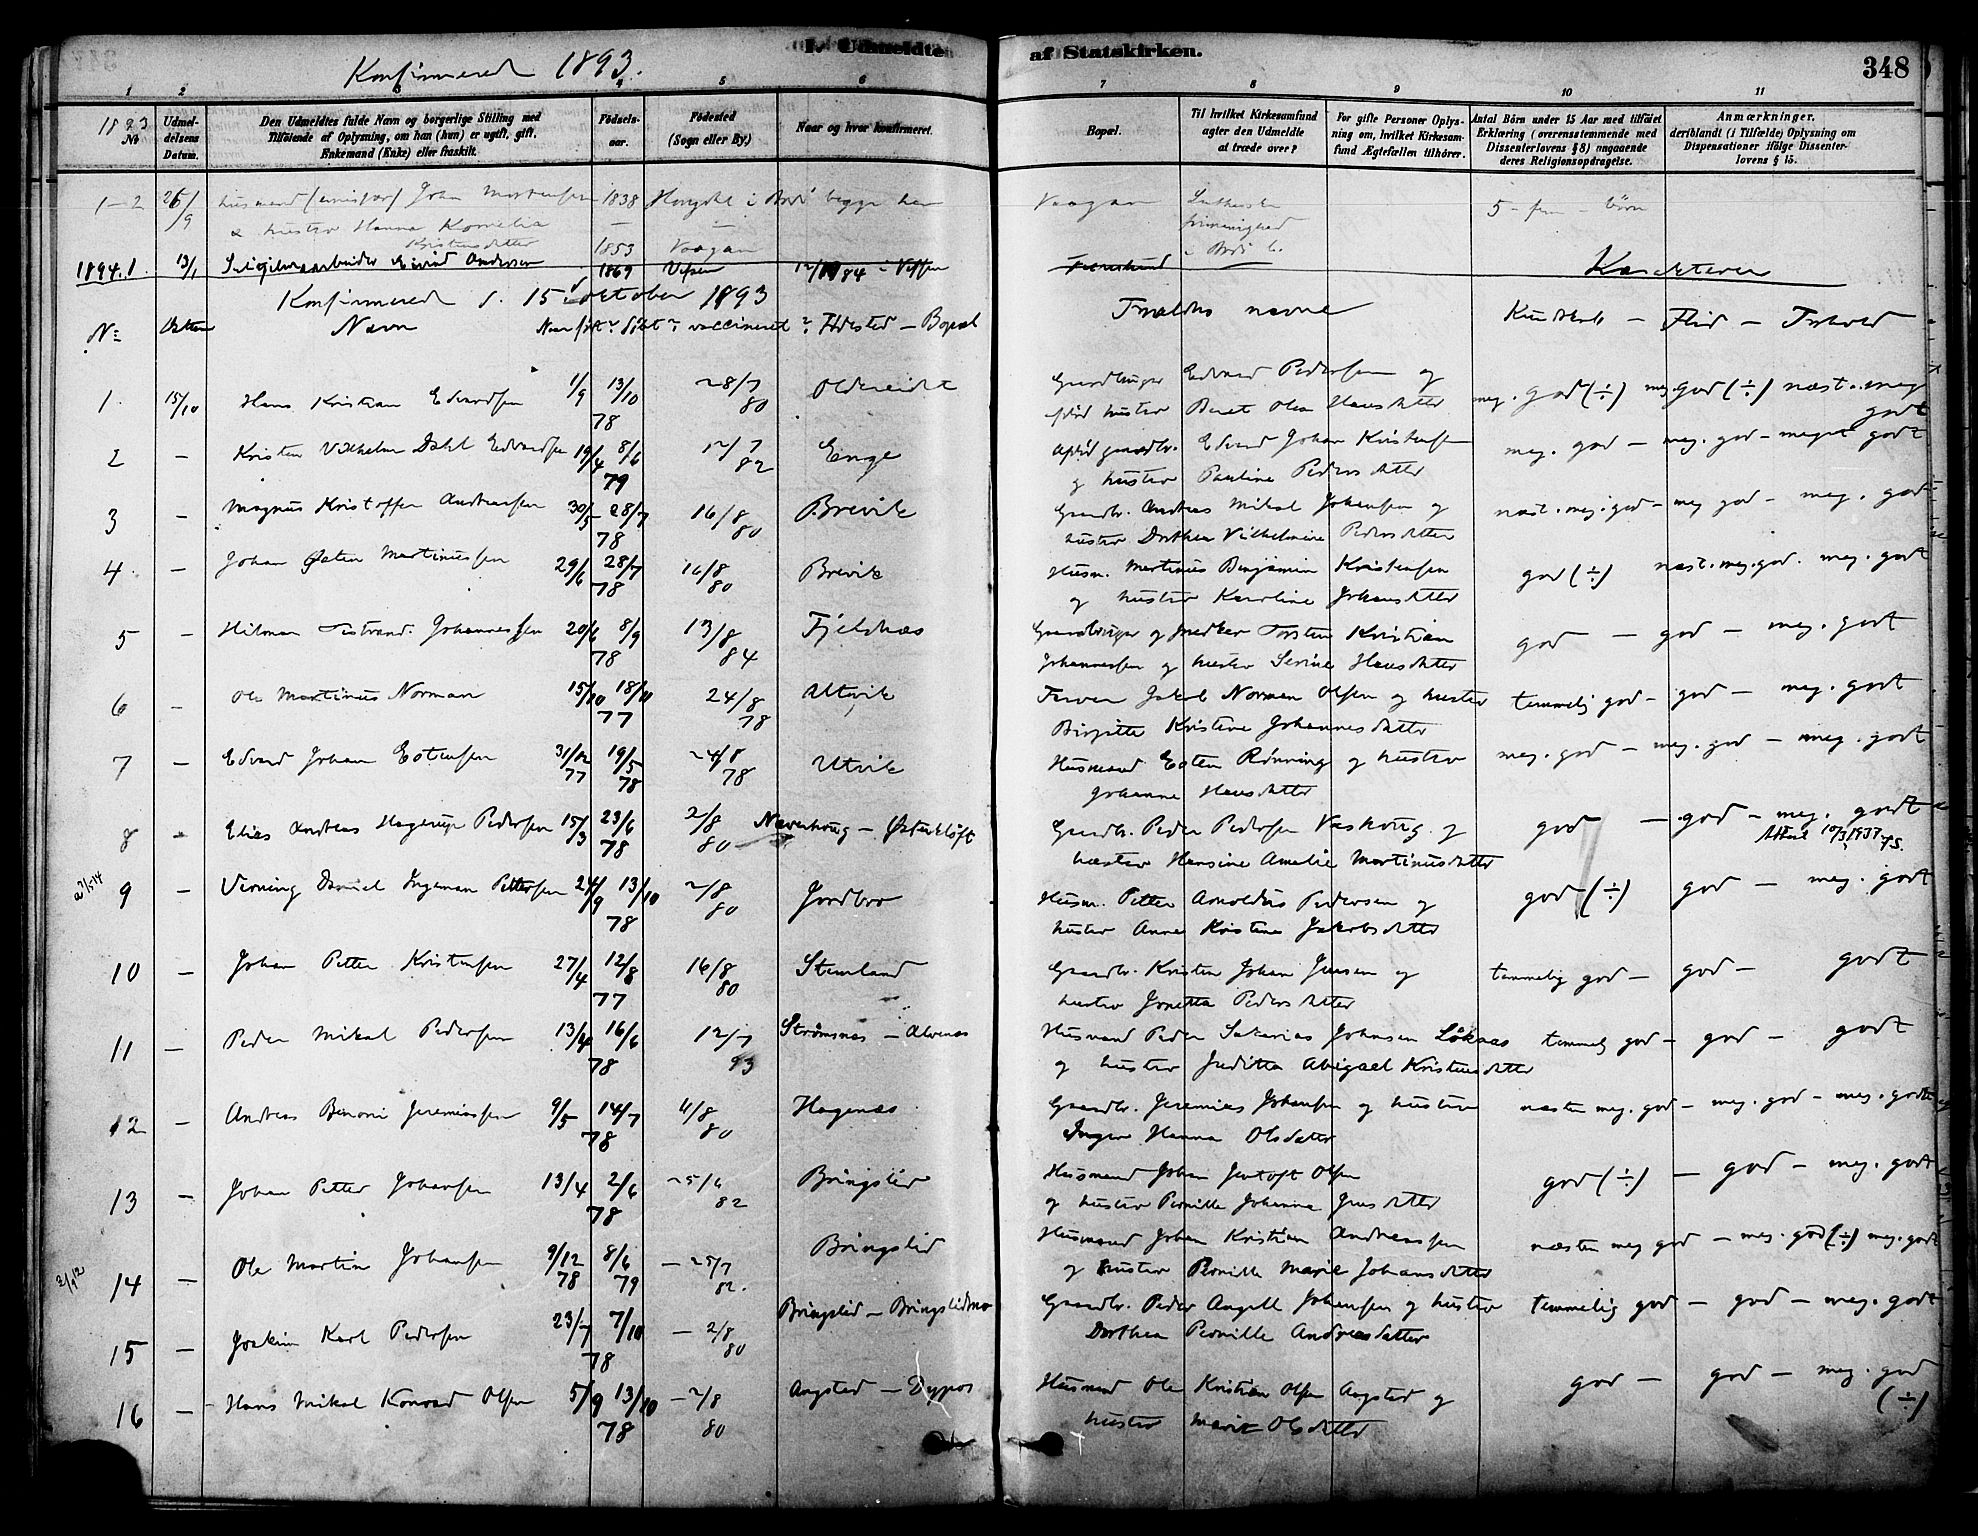 I. Udmeldte af Statskirken.
348
Konfirmerede 1893.
1 2 3 4 5 6 7 8 9 10 11
1893 No
Udmeldelsens Datum.
Den Udmeldtes fulde Navn og borgerlige Stilling med
Tilføiende af Oplysning, om han (hun) er ugift, gift,
Enkemand (Enke) eller fraskilt.
Fødselsaar.
Fødested
(Sogn eller By.)
Naar og hvor konfirmeret.
Bopæl.
Til hvilket Kirkesamfund
agter den Udmeldte
at træde over?
For gifte Personer Oplysning
om, hvilket Kirkesamfund
Ægtefællen tilhører.
Antal Börn under 15 Aar med tilføiet
Erklæring (overensstemmende med
Dissenterlovens § 8) angaaende
deres Religionsopdragelse.
Anmærkninger,
deriblandt (i Tilfælde) Oplysning om
Dispensationer ifølge Dissenterlovens
§ 15.
1-2 26/9 husmand Johan Mortensen 1838 i Bodø begge Vaagan Lutherske frimenighed 5 - fem - børn
& hustru Hanna Kornelia Kristensdatter 1853 Vaagan i Bodø
1894.1. 13/1 Eivind Andersen 1869 Vefsen 84 i Vefsen
Karakterer
Konfirmerede d. 15 oktober 1893
No Datum Navn Naar født? døbt? vaccineret? Fødested - Bopæl Forældres navne Kundskab - Flid - Forhold
1. 15/10 Hans Kristian Edvardsen 1/9 13/10 78 28/7 80 Oldereidet Gaardbruger Edvard Pedersen og
hustru Beret Olea Hansdatter meg. god (÷) meg. god (÷) næst. meg godt
2 - Kristen Vilhelm Dahl Edvardsen 19/4 8/6 79 12/7 82 Enge gaardbr. Edvard Johan Kristensen
og hustru Pauline Pedersdatter meg. god - meg. god - meget godt
3 - Magnus Kristoffer Andreassen 30/5 28/7 78 16/8 80 Brevik Gaardbr. Andreas Mikal Johansen og
hustru Dorthea Vilhelmine Pedersdatter næst. meg. god - meg god - meg. godt
4 - Johan Østen Martinussen 29/6 28/7 78 16/8 80 Brevik Husm. Martinus Benjamin Kristensen
og hustru Karoline Johansdatter god (÷) næst. meg. god. meg. godt
5 - Hilman Johannessen 20/6 8/9 78 13/8 84 Fjelsnæs Gaardbruger og snedker Torsten Kristian
Johannessen og hustru Serine Hansdatter god - god - meg. godt
6 - Ole Martinus Norman 15/10 18/11 77 24/8 78 Utvik Jakob Norman Olsen og hustru
Birgitte Kristine Johannesdatter temmelig god - god - meg. godt
7 - Edvard Johan Estensen 31/12 77 19/5 78 24/8 78 Utvik Husmand Esten Rønning og hustru
Johanna Hansdatter meg. god - meg. god - meg. godt
8 - Elias Andreas Hagerup Pedersen 15/3 23/6 78 2/8 80 Naverhaug - Østerkløft Gaardbr. Peder Pedersen og
hustru Hansine Amalie Martinusdatter god - god - meg. godt
Attest 10/3 1937
9 - Verning Daniel Ingeman Pettersen 24/9 13/10 78 2/8 80 Jordbro Husm. Petter Arnoldus Pedersen og
hustru Anne Kristine Jakobsdatter god (÷) god - meg. godt
10 - Johan Petter Kristensen 27/4 12/8 77 16/8 80 Stemland Gaardbr. Kristen Johan Jensen og
hustru Jonetta Pedersdatter temmelig god - god - godt
11 - Peder Mikal Pedersen 13/4 16/6 78 12/7 93 Strømsnæs - Alvenes Husmand Peder Sakarias Johnsen Løknæs
og hustru Juditta Abigael Kristensdatter temmelig god - god - godt
12 - Andreas Benoni Jeremiassen 9/5 14/7 78 11/8 80 Hagenæs Gaardbr. Jeremias Johansen og hustru
Inger Hanna Olsdatter næsten meg. god - meg. god - meg. godt
13 - Johan Petter Johansen 13/4 2/6 78 25/6 82 Bringslid Husmand Johan Jentoft Olsen
og hustru Pernille Johanna Jensdatter god (÷) - god - meg. godt
2/1 12 14 - Ole Martin Johansen 9/12 78 8/6 79 - 25/7 82. Bringslid Husmand Johan Kristian Andreassen
og hustru Pernille Marie Johansdatter næsten meg god - meg. god (÷) meg. godt
15 - Joakim Karl Pedersen 23/7 7/10 78 - 2/8 80 Bringslid - Bringslidmo Gaardbr. Peder Angell Johansen og hustru
Dorthea Pernille Andreasdatter temmelig god - god - meg. godt
16 - Hans Mikal Konrad Olsen 5/9 13/10 78 - 2/8 80 Angstad - Dypos Husmand Ole Kristian Olsen Angstad og
hustru Marit Olsdatter god - god - meg. god (÷)